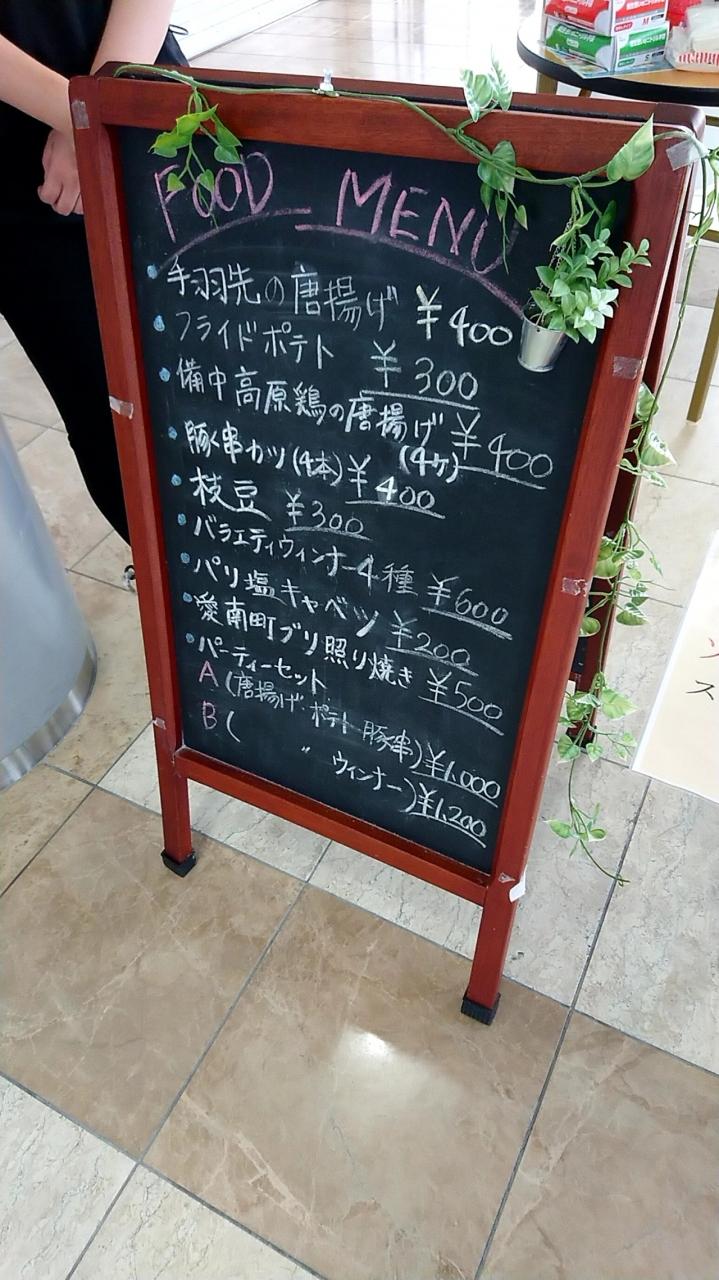 FOOD MENU
・手羽先の唐揚げ ¥400
・フライドポテト ¥300
・備中高原鶏の唐揚げ(4ヶ) ¥400
・豚串カツ(4本) ¥400
・枝豆 ¥300
・バラエティウィンナー4種 ¥600
・パリ塩キャベツ ¥200
・愛南町ブリ照り焼き ¥500
・パーティーセット
A(唐揚げ・ポテト 豚串)¥1,000
B( 〃 ウィンナー)¥1,200
ス
M
S